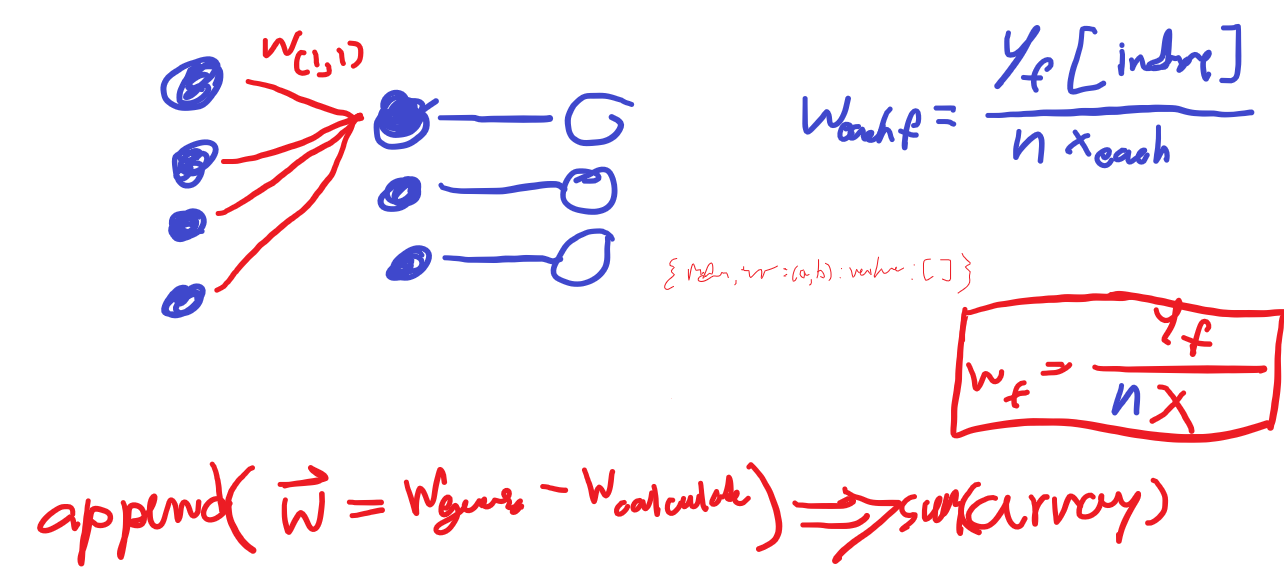 W(1,1)
W each f = y f [ indre ] / n x each
{ , w = (a,b) : value : [ ] }
w f = y f / n x
append( w⃗ = W guess - W calculate ) ⇒ sum(array)